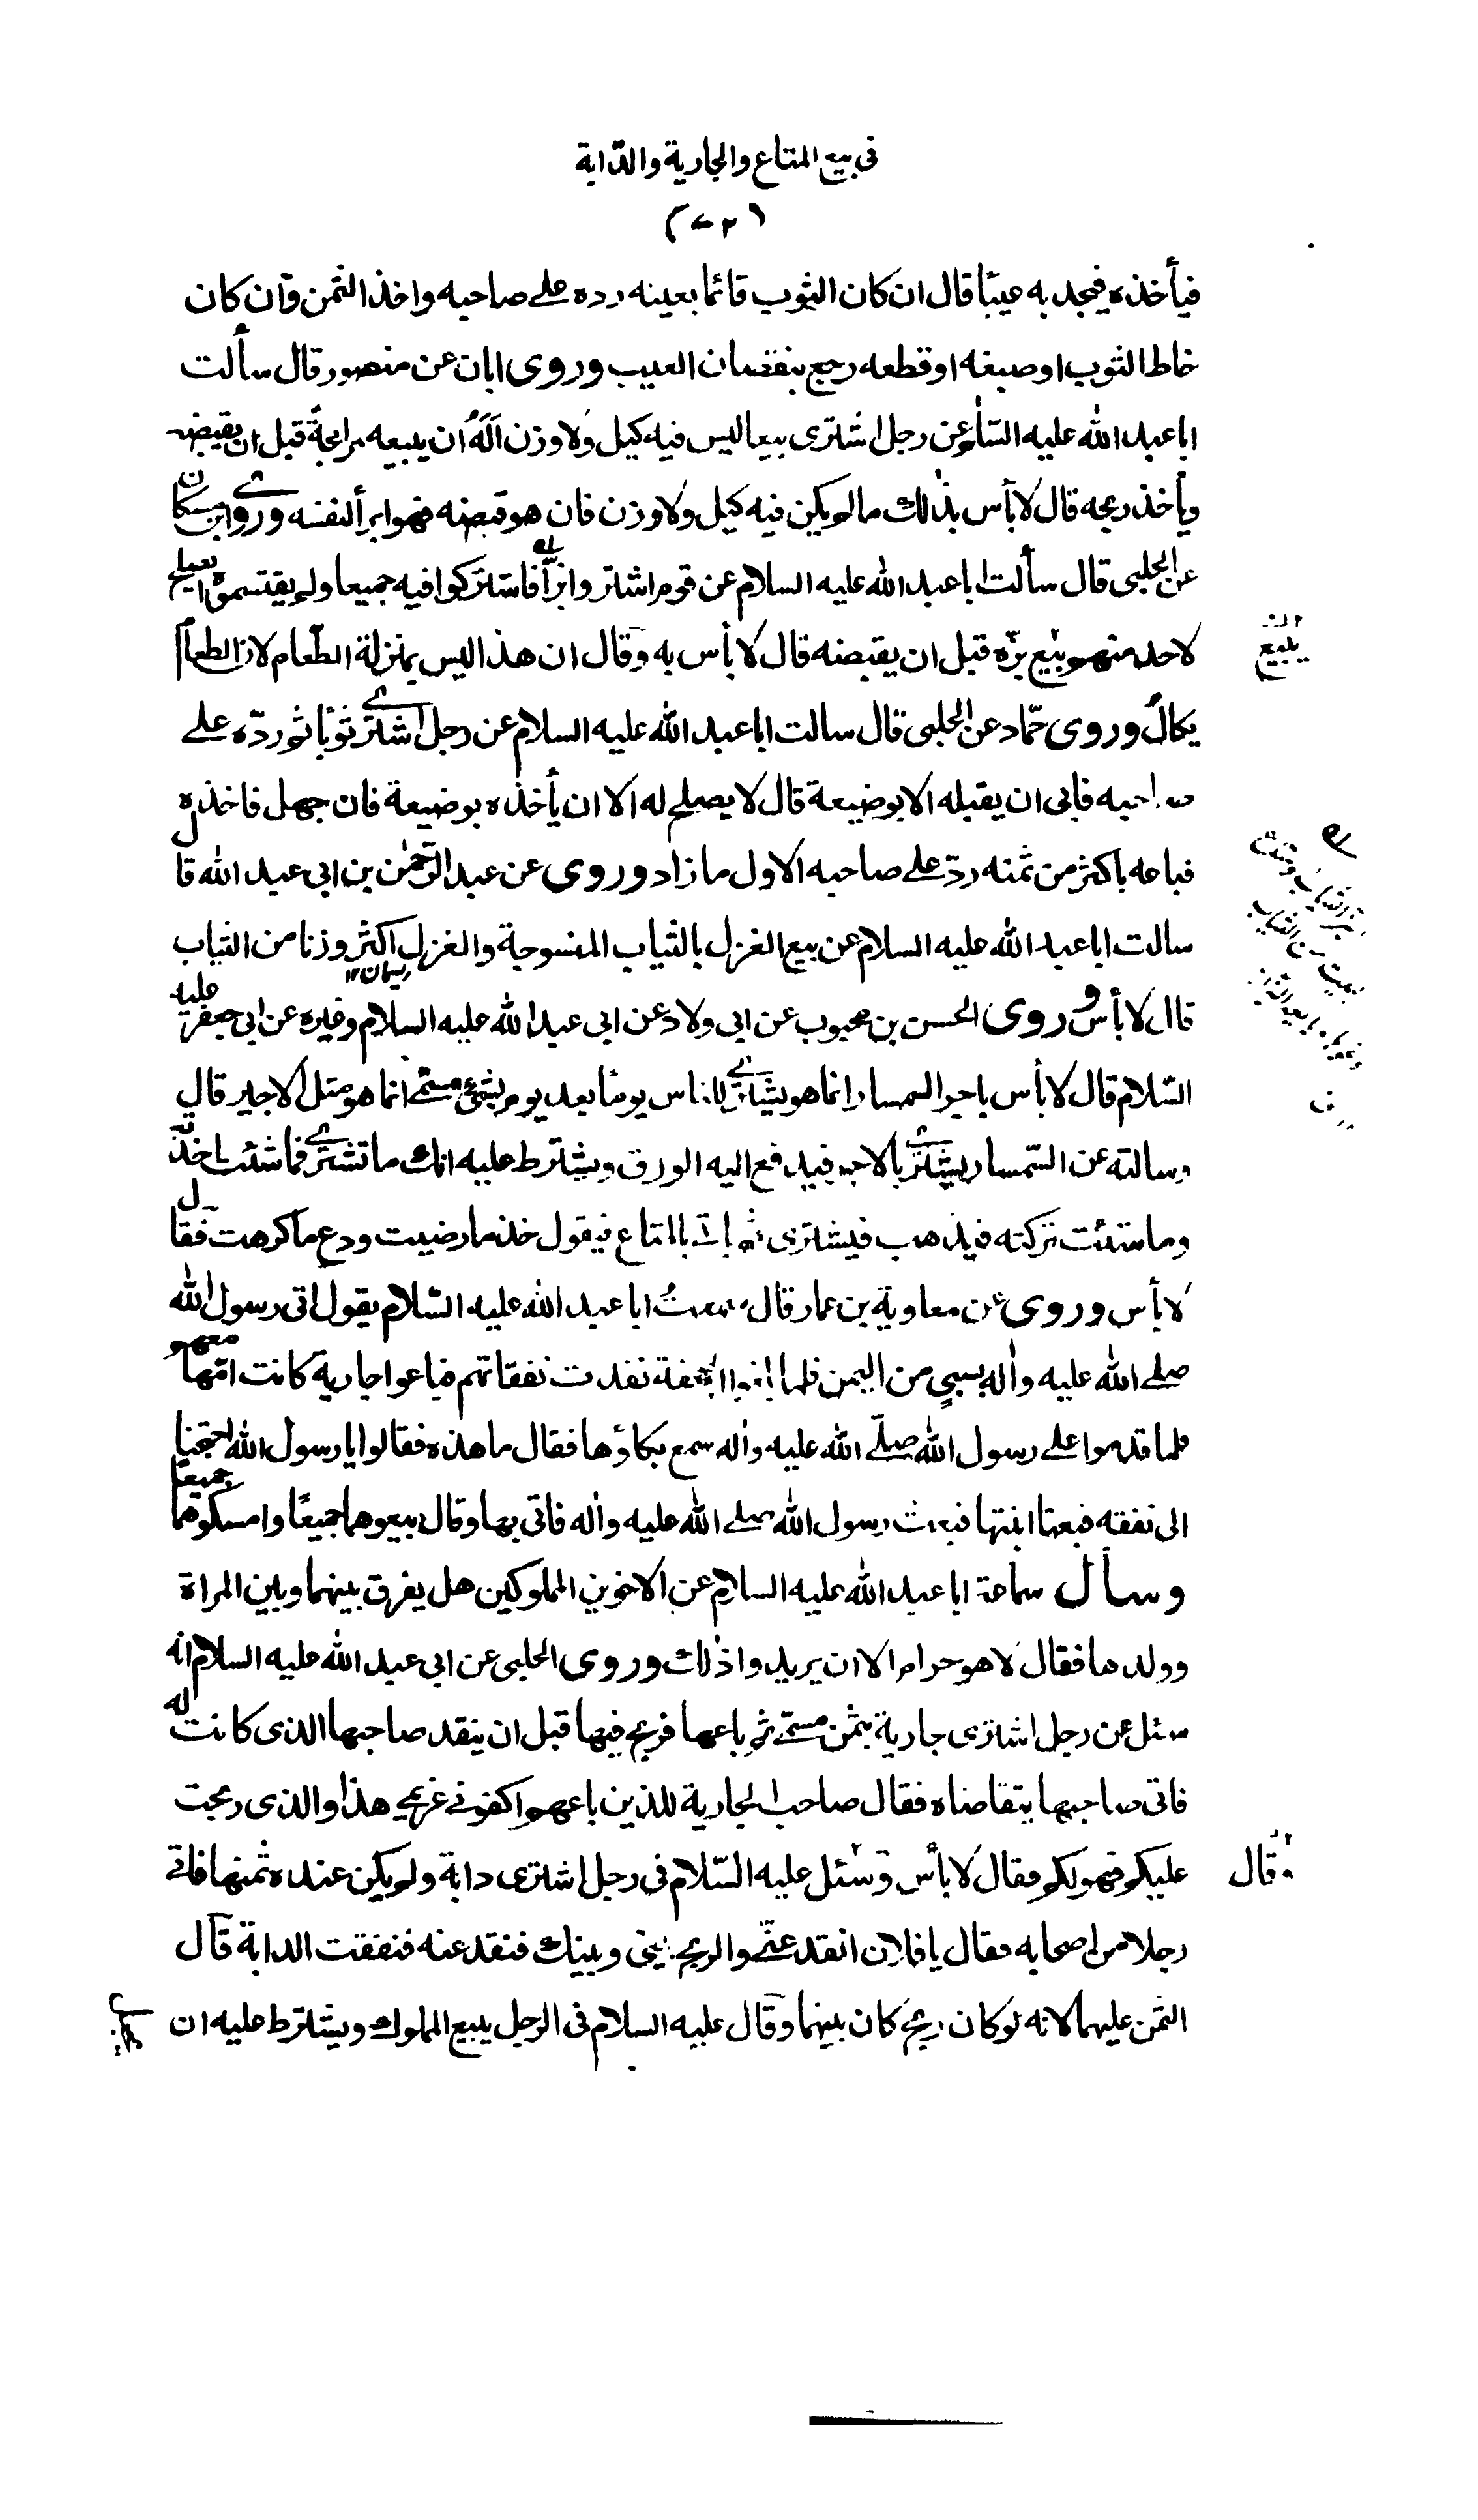 في بيع المتاع والجارية والدّابة
(٧٢)
فيأخذه فيجد به عيبًا قال ان كان الثوب قائما بعينه رده على صاحبه واخذ الثمن وان كان
خاط الثوب او صبغه او قطعه رجع بنقصان العيب وروى ابان عن منصور قال سألت
ابا عبد الله عليه السّلام عن رجل اشترى بيعا ليس فيه كيل ولا وزن اَلَهُ ان يبيعه مرابحةً قبل ان يقبضه
ويأخذ ربحه قال لا بأس بذلك ما لم يكن فيه كيل ولا وزن فان هو قبضه فهو ابرأ لنفسه وروى ابن مسكان
عن الحلبى قال سألت ابا عبد الله عليه السلام عن قوم اشتروا بزًّا فاشتركوا فيه جميعا ولم يقتسموه ايصلح
لاحد منهم بيع بزّه قبل ان يقبضه قال لا بأس به وقال ان هذا ليس بمنزلة الطّعام لان الطعام
يكال وروى حمّاد عن الحلبى قال سالت ابا عبد الله عليه السلام عن رجل اشترى ثوبًا ثم ردّه على
صاحبه فابى ان يقبله الا بوضيعة قال لا يصلح له الا ان يأخذه بوضيعة فان جهل فاخذه
فباعه باكثر من ثمنه ردّ على صاحبه الاول ما زاد وروى عن عبد الرّحمٰن بن ابى عبد الله قال
سالت ابا عبد الله عليه السلام عن بيع الغزل بالثياب المنسوجة والغزل اكثر وزنا من الثياب
ريسمان ١٢
قال لا بأس وروى الحسن بن محبوب عن ابى ولاد عن ابى عبد الله عليه السلام وغيره عن ابى جعفر عليه
السّلام قال لا بأس باجر السمسار انما هو يشترى للناس يومًا بعد يوم بشىء مسمّى انما هو مثل الاجير قال
وسالته عن السّمسار يشترى بالاجر فيدفع اليه الورق ويشترط عليه انك ما تشترى فما شئت اخذته
وما شئت تركته فيذهب فيشترى ثم ياتى بالمتاع فيقول خذ ما رضيت ودع ما كرهت فقال
لا بأس وروى عن معاوية بن عمار قال سمعتُ ابا عبد الله عليه السّلام يقول اتى رسول الله
صلى الله عليه واٰله بسبىٍ من اليمن فلما بلغوا الجحفة نفدت نفقاتهم فباعوا جارية كانت امّها معهم
فلما قدموا على رسول الله صلّى الله عليه واٰله سمع بكاؤها فقال ما هذه فقالوا يا رسول الله احتجنا
الى نفقه فبعنا ابنتها فبعث رسول الله صلى الله عليه واٰله فاتى بها وقال بيعوهما جميعًا وامسكوهما جميعًا
وسأل سماعة ابا عبد الله عليه السلام عن الاخوين المملوكين هل يفرق بينهما وبين المراة
وولدها فقال لا هو حرام الا ان يريدوا ذٰلك وروى الحلبى عن ابى عبد الله عليه السلام انه
سئل عن رجل اشترى جارية بثمن مسمّى ثم باعها فربح فيها قبل ان ينقد صاحبها الذى كانت له
فاتى صاحبها يتقاضاه فقال صاحب الجارية للذين باعهم اكفونى غريمى هذا والذى ربحت
عليكم فهو لكم فقال لا بأس وسُئل عليه السّلام فى رجل اشترى دابة ولم يكن عنده ثمنها فاتى
وقال
رجلا من اصحابه فقال يا فلان انقد عنّى والربح بينى وبينك فنقد عنه فنفقت الدابة قال
الثمن عليهما لانه لو كان ربح كان بينهما وقال عليه السلام فى الرجل يبيع المملوك ويشترط عليه ان
يبيع